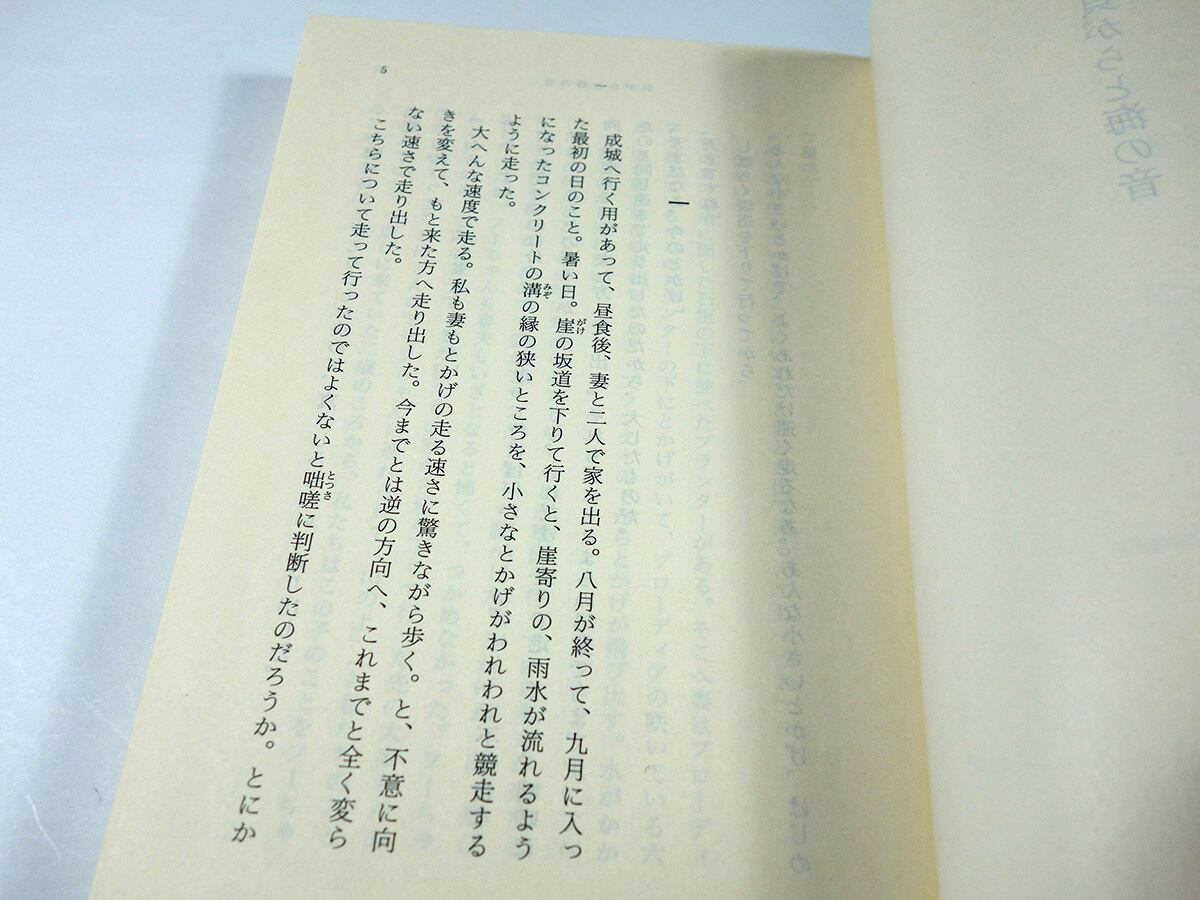 5
一
成城へ行く用があって、昼食後、妻と二人で家を出る。八月が終って、九月に入っ
た最初の日のこと。暑い日。崖の坂道を下りて行くと、崖寄りの、雨水が流れるよう
になったコンクリートの溝の縁の狭いところを、小さなとかげがわれわれと競走する
ように走った。
大へんな速度で走る。私も妻もとかげの走る速さに驚きながら歩く。と、不意に向
きを変えて、もと来た方へ走り出した。今までとは逆の方向へ、これまでと全く変ら
ない速さで走り出した。
こちらについて走って行ったのではよくないと咄嗟に判断したのだろうか。とにか